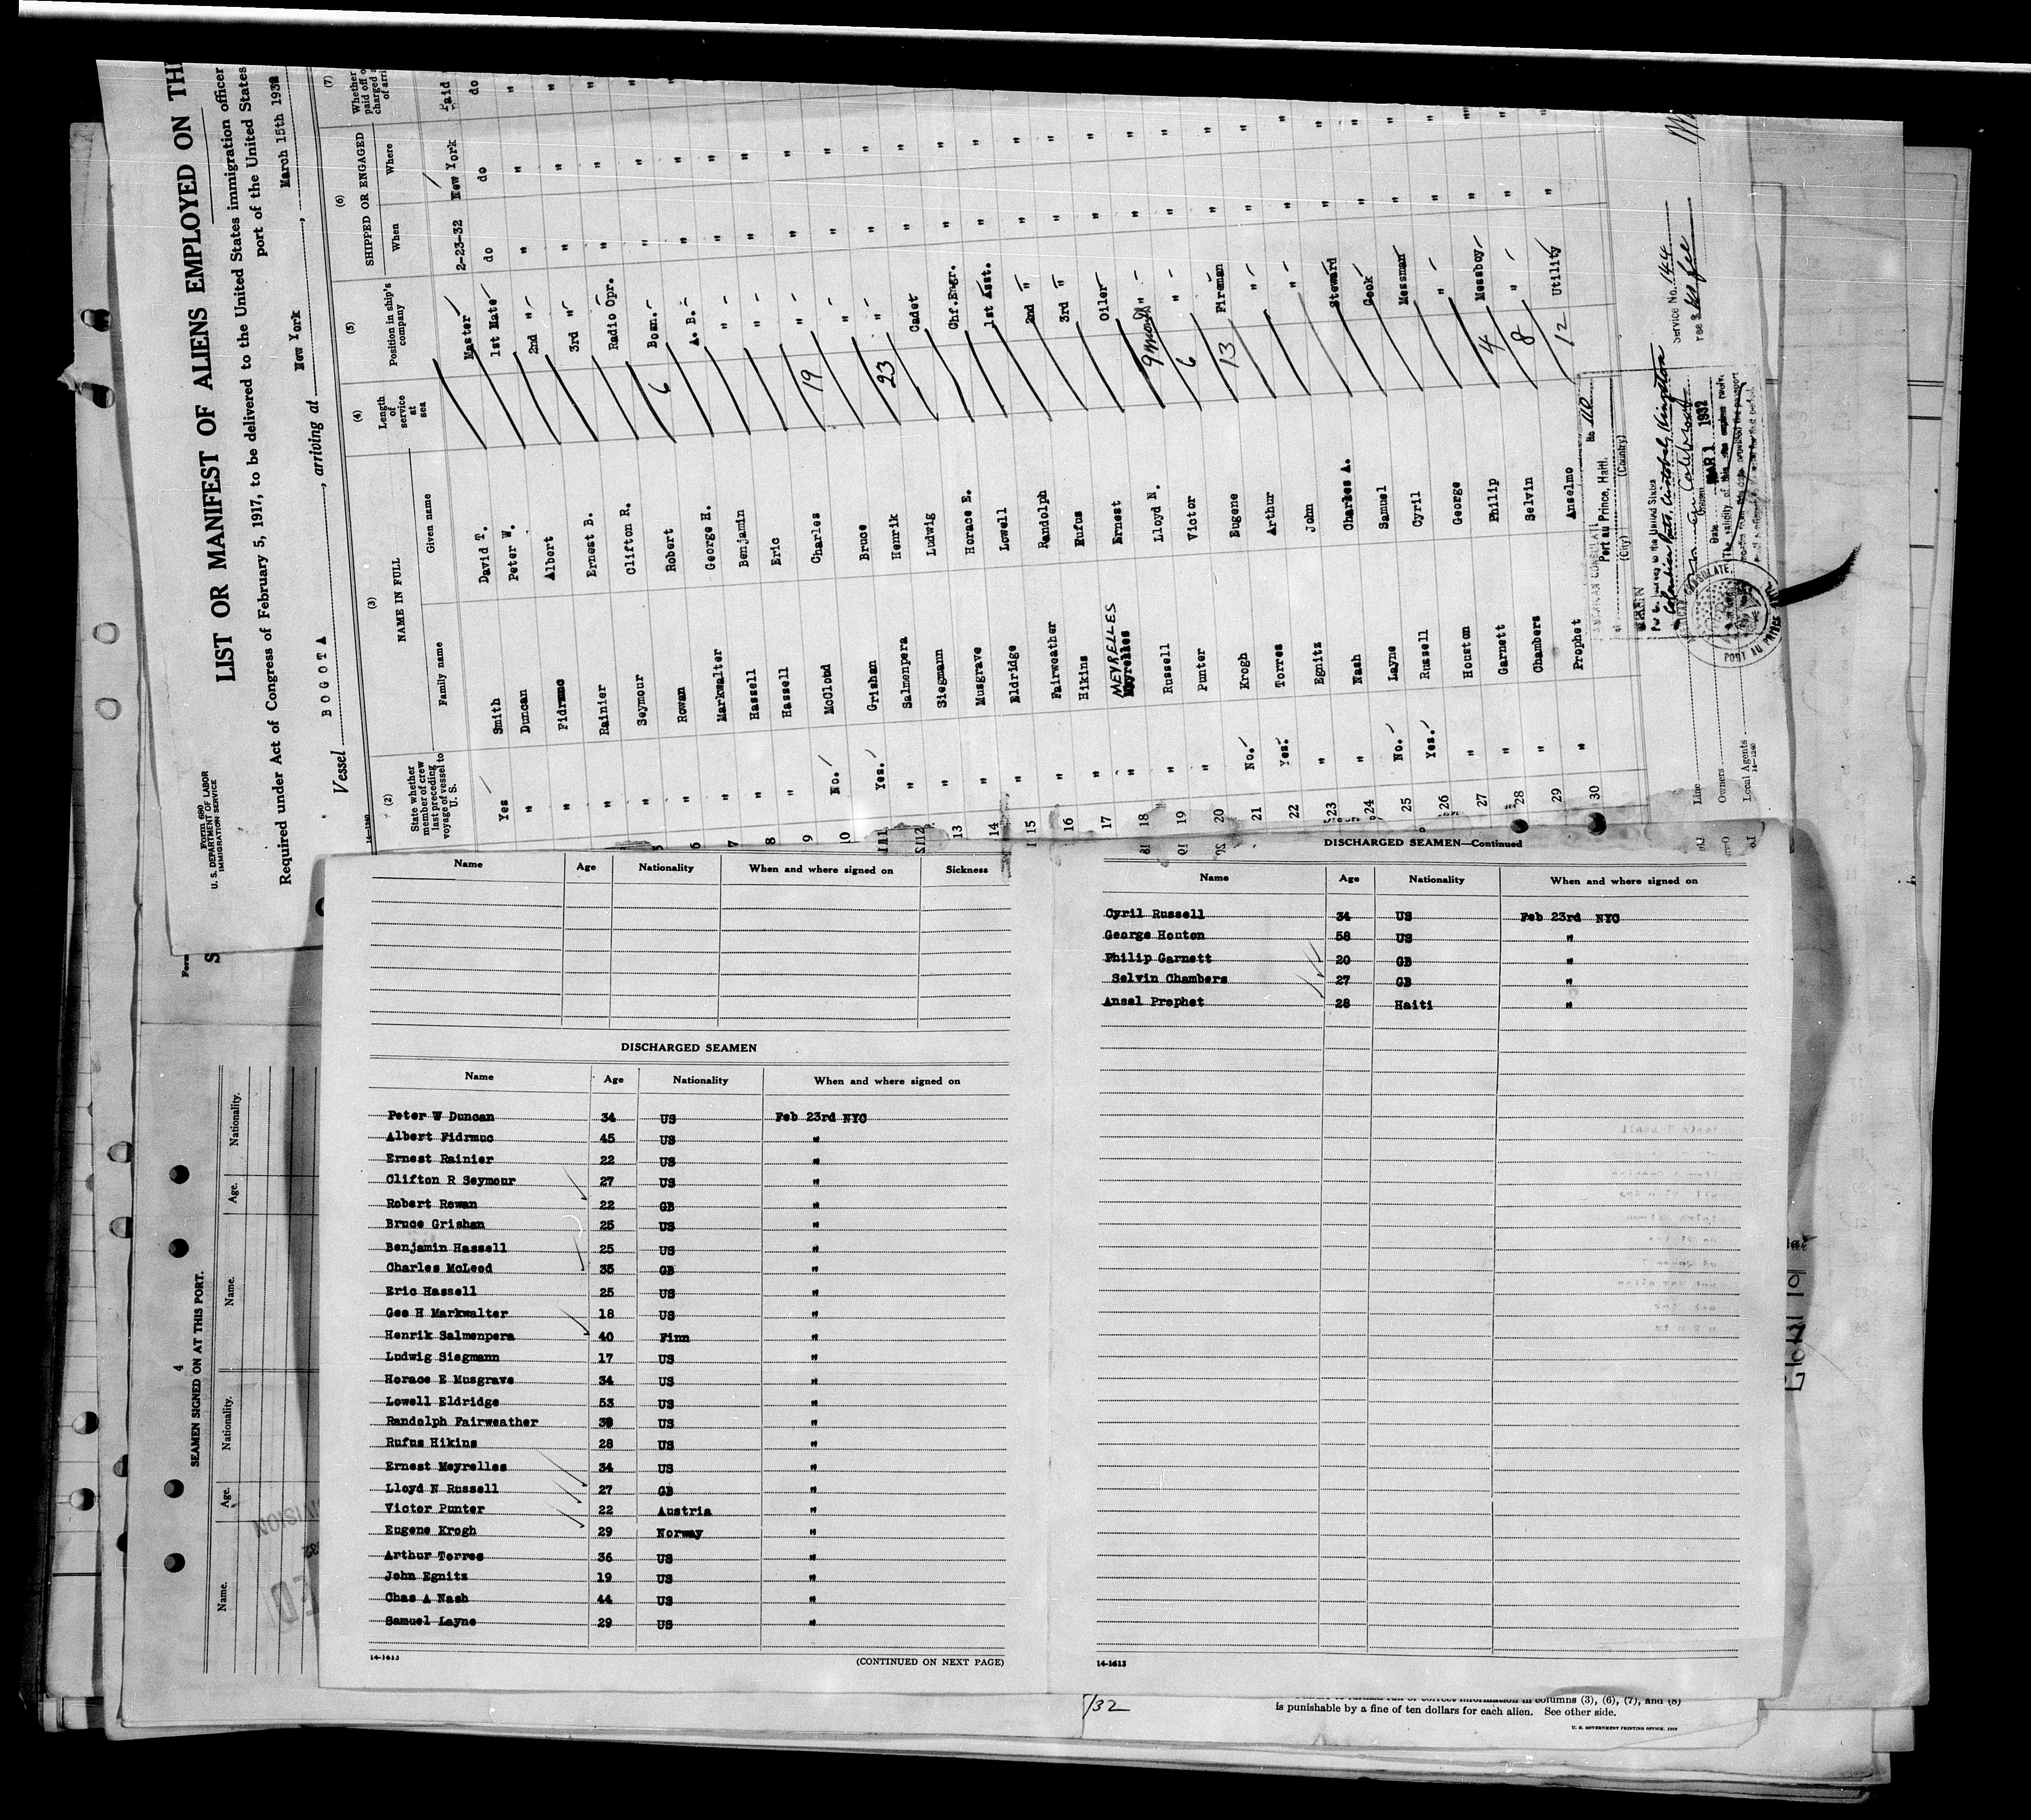 Form 680
U. S. DEPARTMENT OF LABOR
IMMIGRATION SERVICE
LIST OR MANIFEST OF ALIENS EMPLOYED ON TH
Required under Act of Congress of February 5, 1917, to be delivered to the United States immigration officer
port of the United States
Vessel BOGOTA, arriving at New York, March 15th 1932
(2) (3) (4) (5) (6) (7)
State whether member of crew last preceding voyage of vessel to U. S.
NAME IN FULL
Family name Given name
Length of service at sea
Position in ship's company
SHIPPED OR ENGAGED
When Where
Yes Smith David T. Master 2-23-32 New York
" Duncan Peter W. 1st Mate do do do
" Fidrmuc Albert 2nd " " " "
" Rainier Ernest B. 3rd " " " "
" Seymour Clifton R. Radio Opr. " " "
" Rowan Robert 6 Bosn. " " "
7 " Markwalter George H. A. B. " "
8 " Hassell Benjamin " " "
9 " Hassell Eric " " "
10 No. McCloud Charles 19 " " "
11 Yes. Grishan Bruce " " "
12 " Salmenpera Henrik 23 " " "
13 " Siegmann Ludwig Cadet " "
14 " Musgrave Horace E. Chf.Engr. " "
15 " Eldridge Lowell 1st Asst. " "
16 " Fairweather Randolph 2nd " " "
17 " Hikins Rufus 3rd " " "
18 " MEYRELLES Ernest Oiler " "
19 " Russell Lloyd N. 9 month " " "
20 " Punter Victor 6 " " "
21 No. Krogh Eugene 13 Fireman " "
22 Yes. Torres Arthur " " "
23 " Egnitz John " " "
24 " Nash Charles A. Steward " "
25 No. Layne Samuel Cook " "
26 Yes. Russell Cyril Messman " "
27 " Houston George " " "
28 " Garnett Philip 4 Messboy " "
29 " Chambers Selvin 8 " " "
30 " Prophet Anselmo 12 Utility "
Line
Owners
Local Agents
AMERICAN CONSULATE
Port au Prince, Haiti.
(City) (Country)
For the journey to the United States
Date MAR 1 1932
Service No. 144
PORT AU PRINCE
Name Age Nationality When and where signed on Sickness
DISCHARGED SEAMEN
Name Age Nationality When and where signed on
Peter W Duncan 34 US Feb 23rd NYC
Albert Fidrmuc 45 US "
Ernest Rainier 22 US "
Clifton R Seymour 27 US "
Robert Rowan 22 GB "
Bruce Grishan 25 US "
Benjamin Hassell 25 US "
Charles McLeod 35 GB "
Eric Hassell 25 US "
Geo H Markwalter 18 US "
Henrik Salmenpera 40 Finn "
Ludwig Siegmann 17 US "
Horace E Musgrave 34 US "
Lowell Eldridge 53 US "
Randolph Fairweather US "
Rufus Hikins 28 US "
Ernest Meyrelles 34 US "
Lloyd N Russell 27 GB "
Victor Punter 22 Austria "
Eugene Krogh 29 Norway "
Arthur Torres 36 US "
John Egnitz 19 US "
Chas A Nash 44 US "
Samuel Layne 29 US "
14-1613
(CONTINUED ON NEXT PAGE)
DISCHARGED SEAMEN—Continued
Name Age Nationality When and where signed on
Cyril Russell 34 US Feb 23rd NYC
George Houton 58 US "
Philip Garnett 20 GB "
Selvin Chambers 27 GB "
Ansel Prophet 28 Haiti "
14-1613
4
SEAMEN SIGNED ON AT THIS PORT.
Name. Age. Nationality. Name. Age. Nationality.
/32
columns (3), (6), (7), and (8)
is punishable by a fine of ten dollars for each alien. See other side.
U. S. GOVERNMENT PRINTING OFFICE